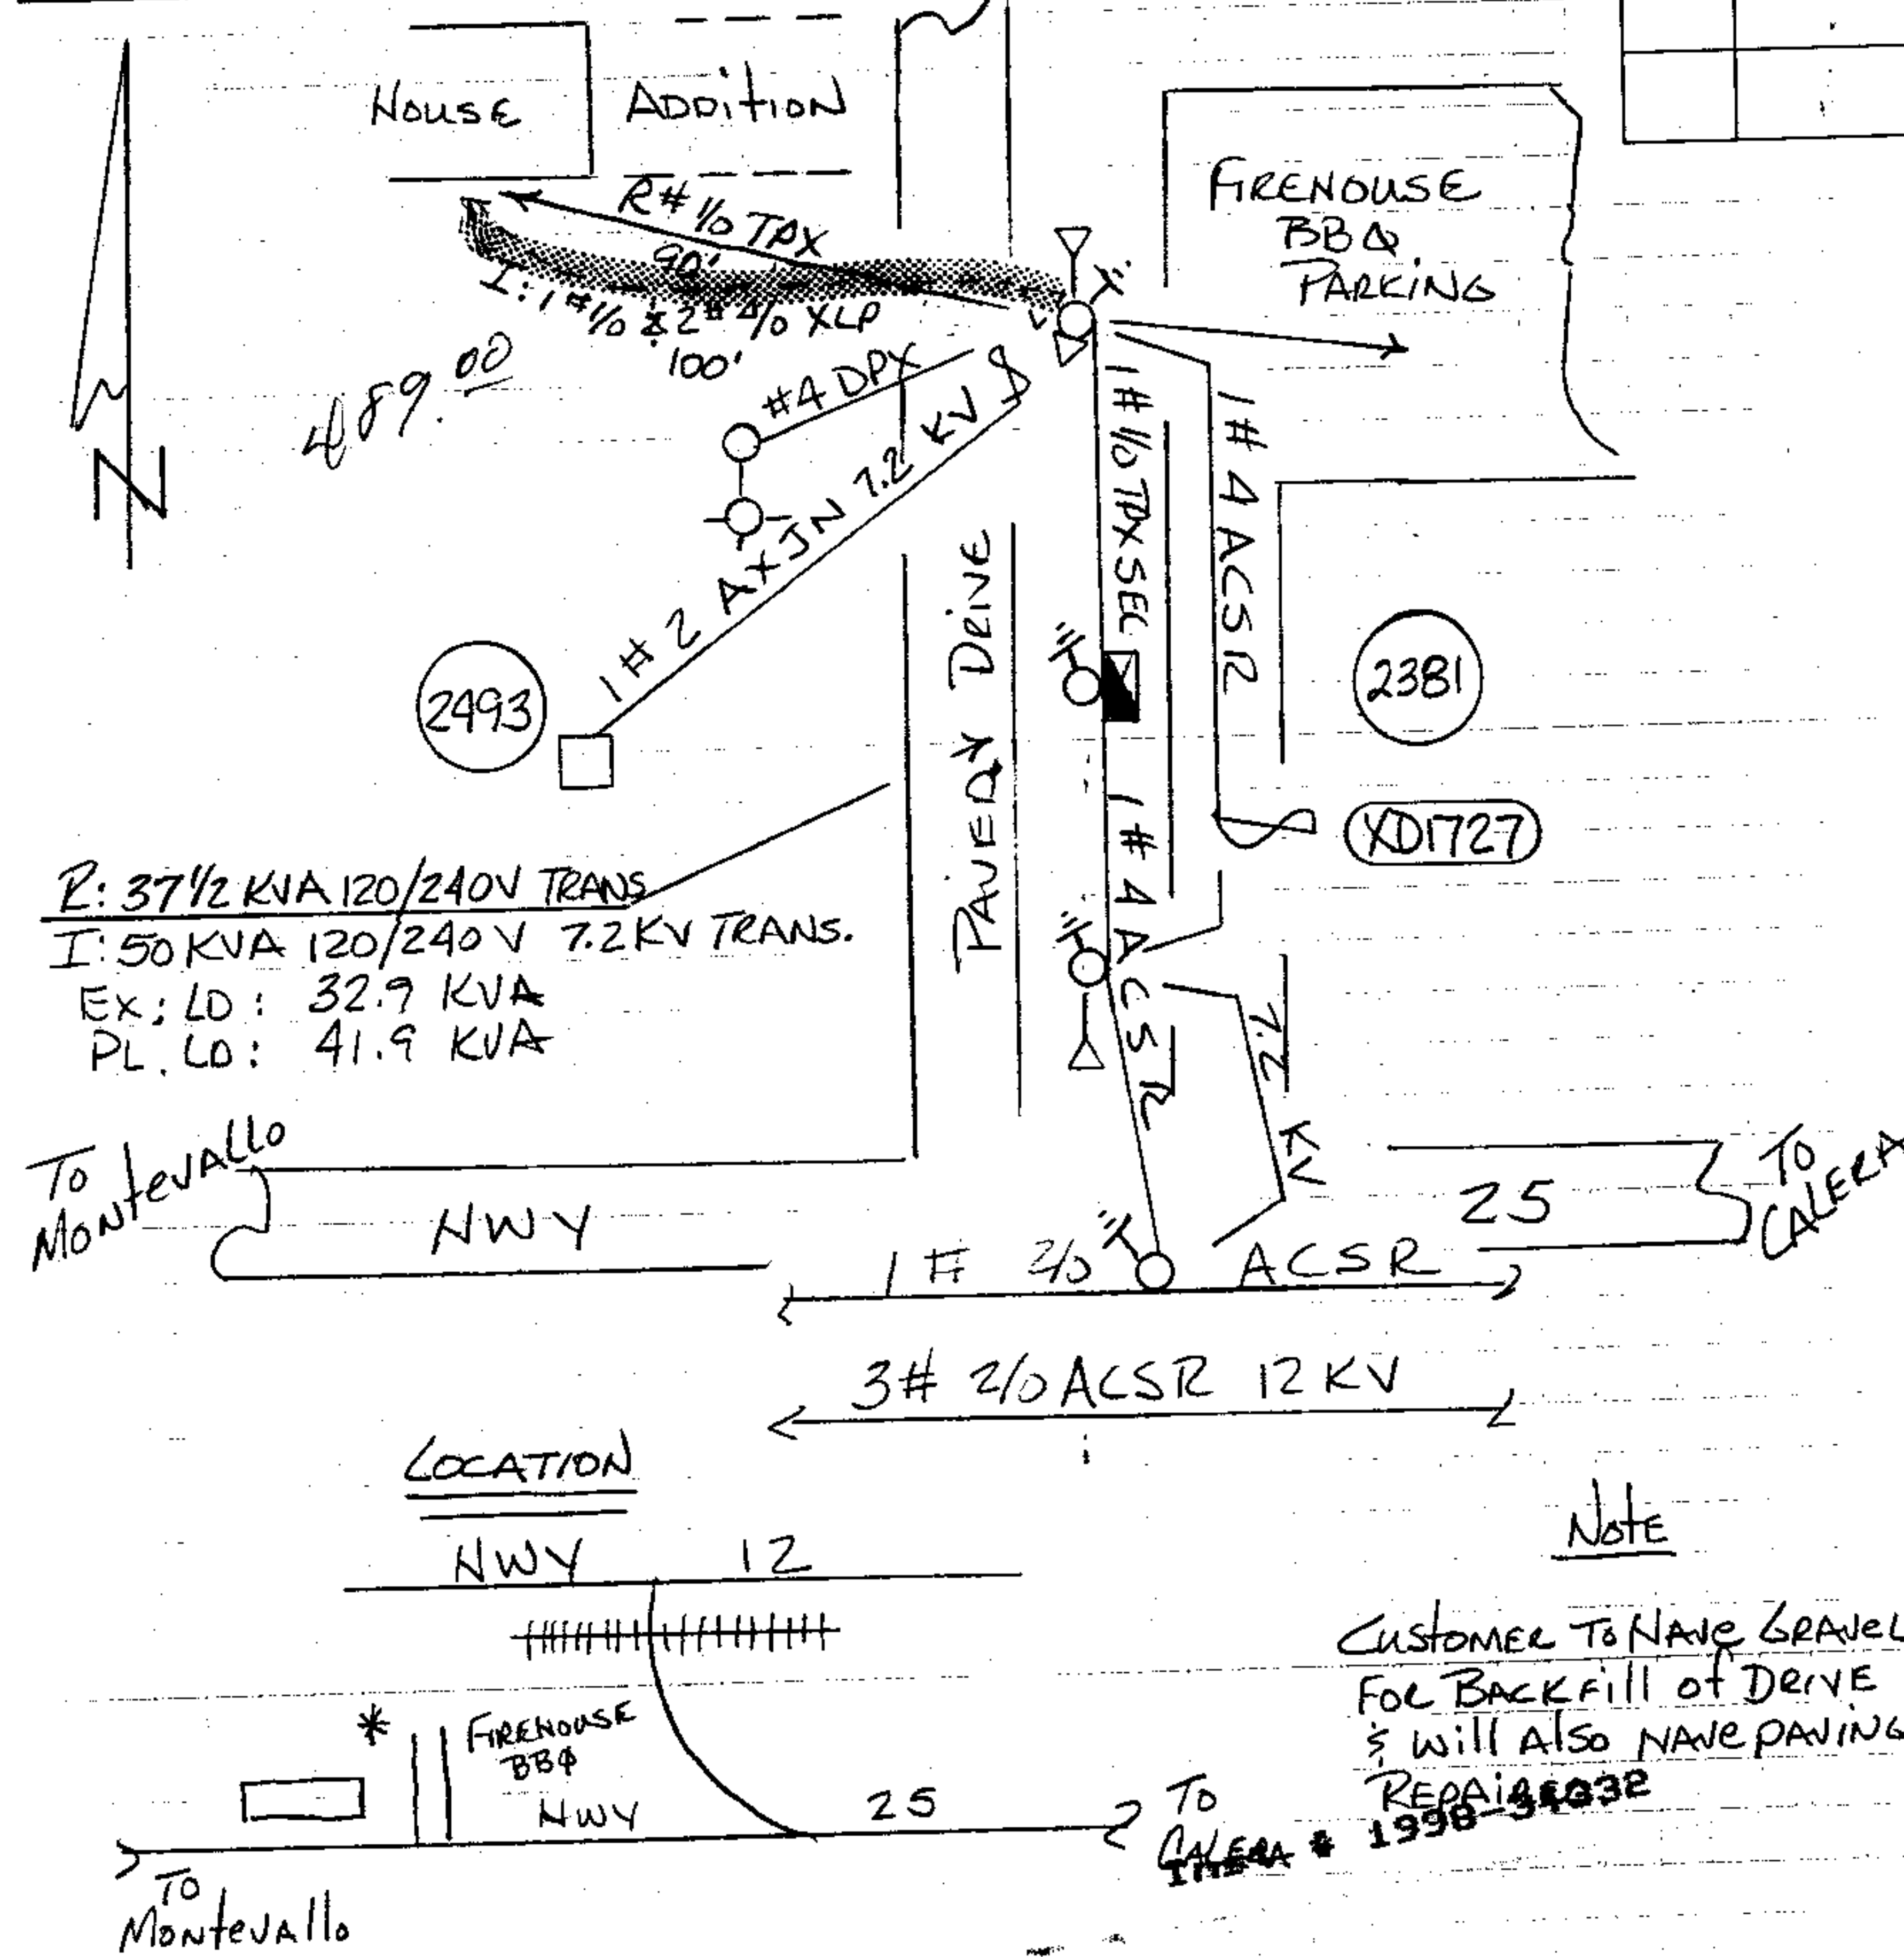 HOUSE
ADDITION
FIREHOUSE
BBQ
PARKING
R# 1/0 TPX
90'
I: 1 # 1/0 & 2 # 4/0 XLP
100'
489.00
#4 DPX
1 # 2 AXJN 7.2 KV
N
1 # 1/0 TPX SEC
1 # 4 ACSR
PAVED DRIVE
2493
2381
XD1727
R: 37 1/2 KVA 120/240V TRANS
I: 50 KVA 120/240 V 7.2KV TRANS.
EX: LD: 32.9 KVA
PL. LD: 41.9 KVA
1 # 4 ACSR
7.2 KV
TO
MONTEVALLO
HWY
25
TO
CALERA
1 # 2/0 ACSR
3# 2/0 ACSR 12 KV
LOCATION
HWY 12
*
FIREHOUSE
BBQ
HWY 25
TO
MONTEVALLO
TO
CALERA
NOTE
CUSTOMER TO HAVE GRAVEL
FOR BACKFILL OF DRIVE
& WILL ALSO HAVE PAVING